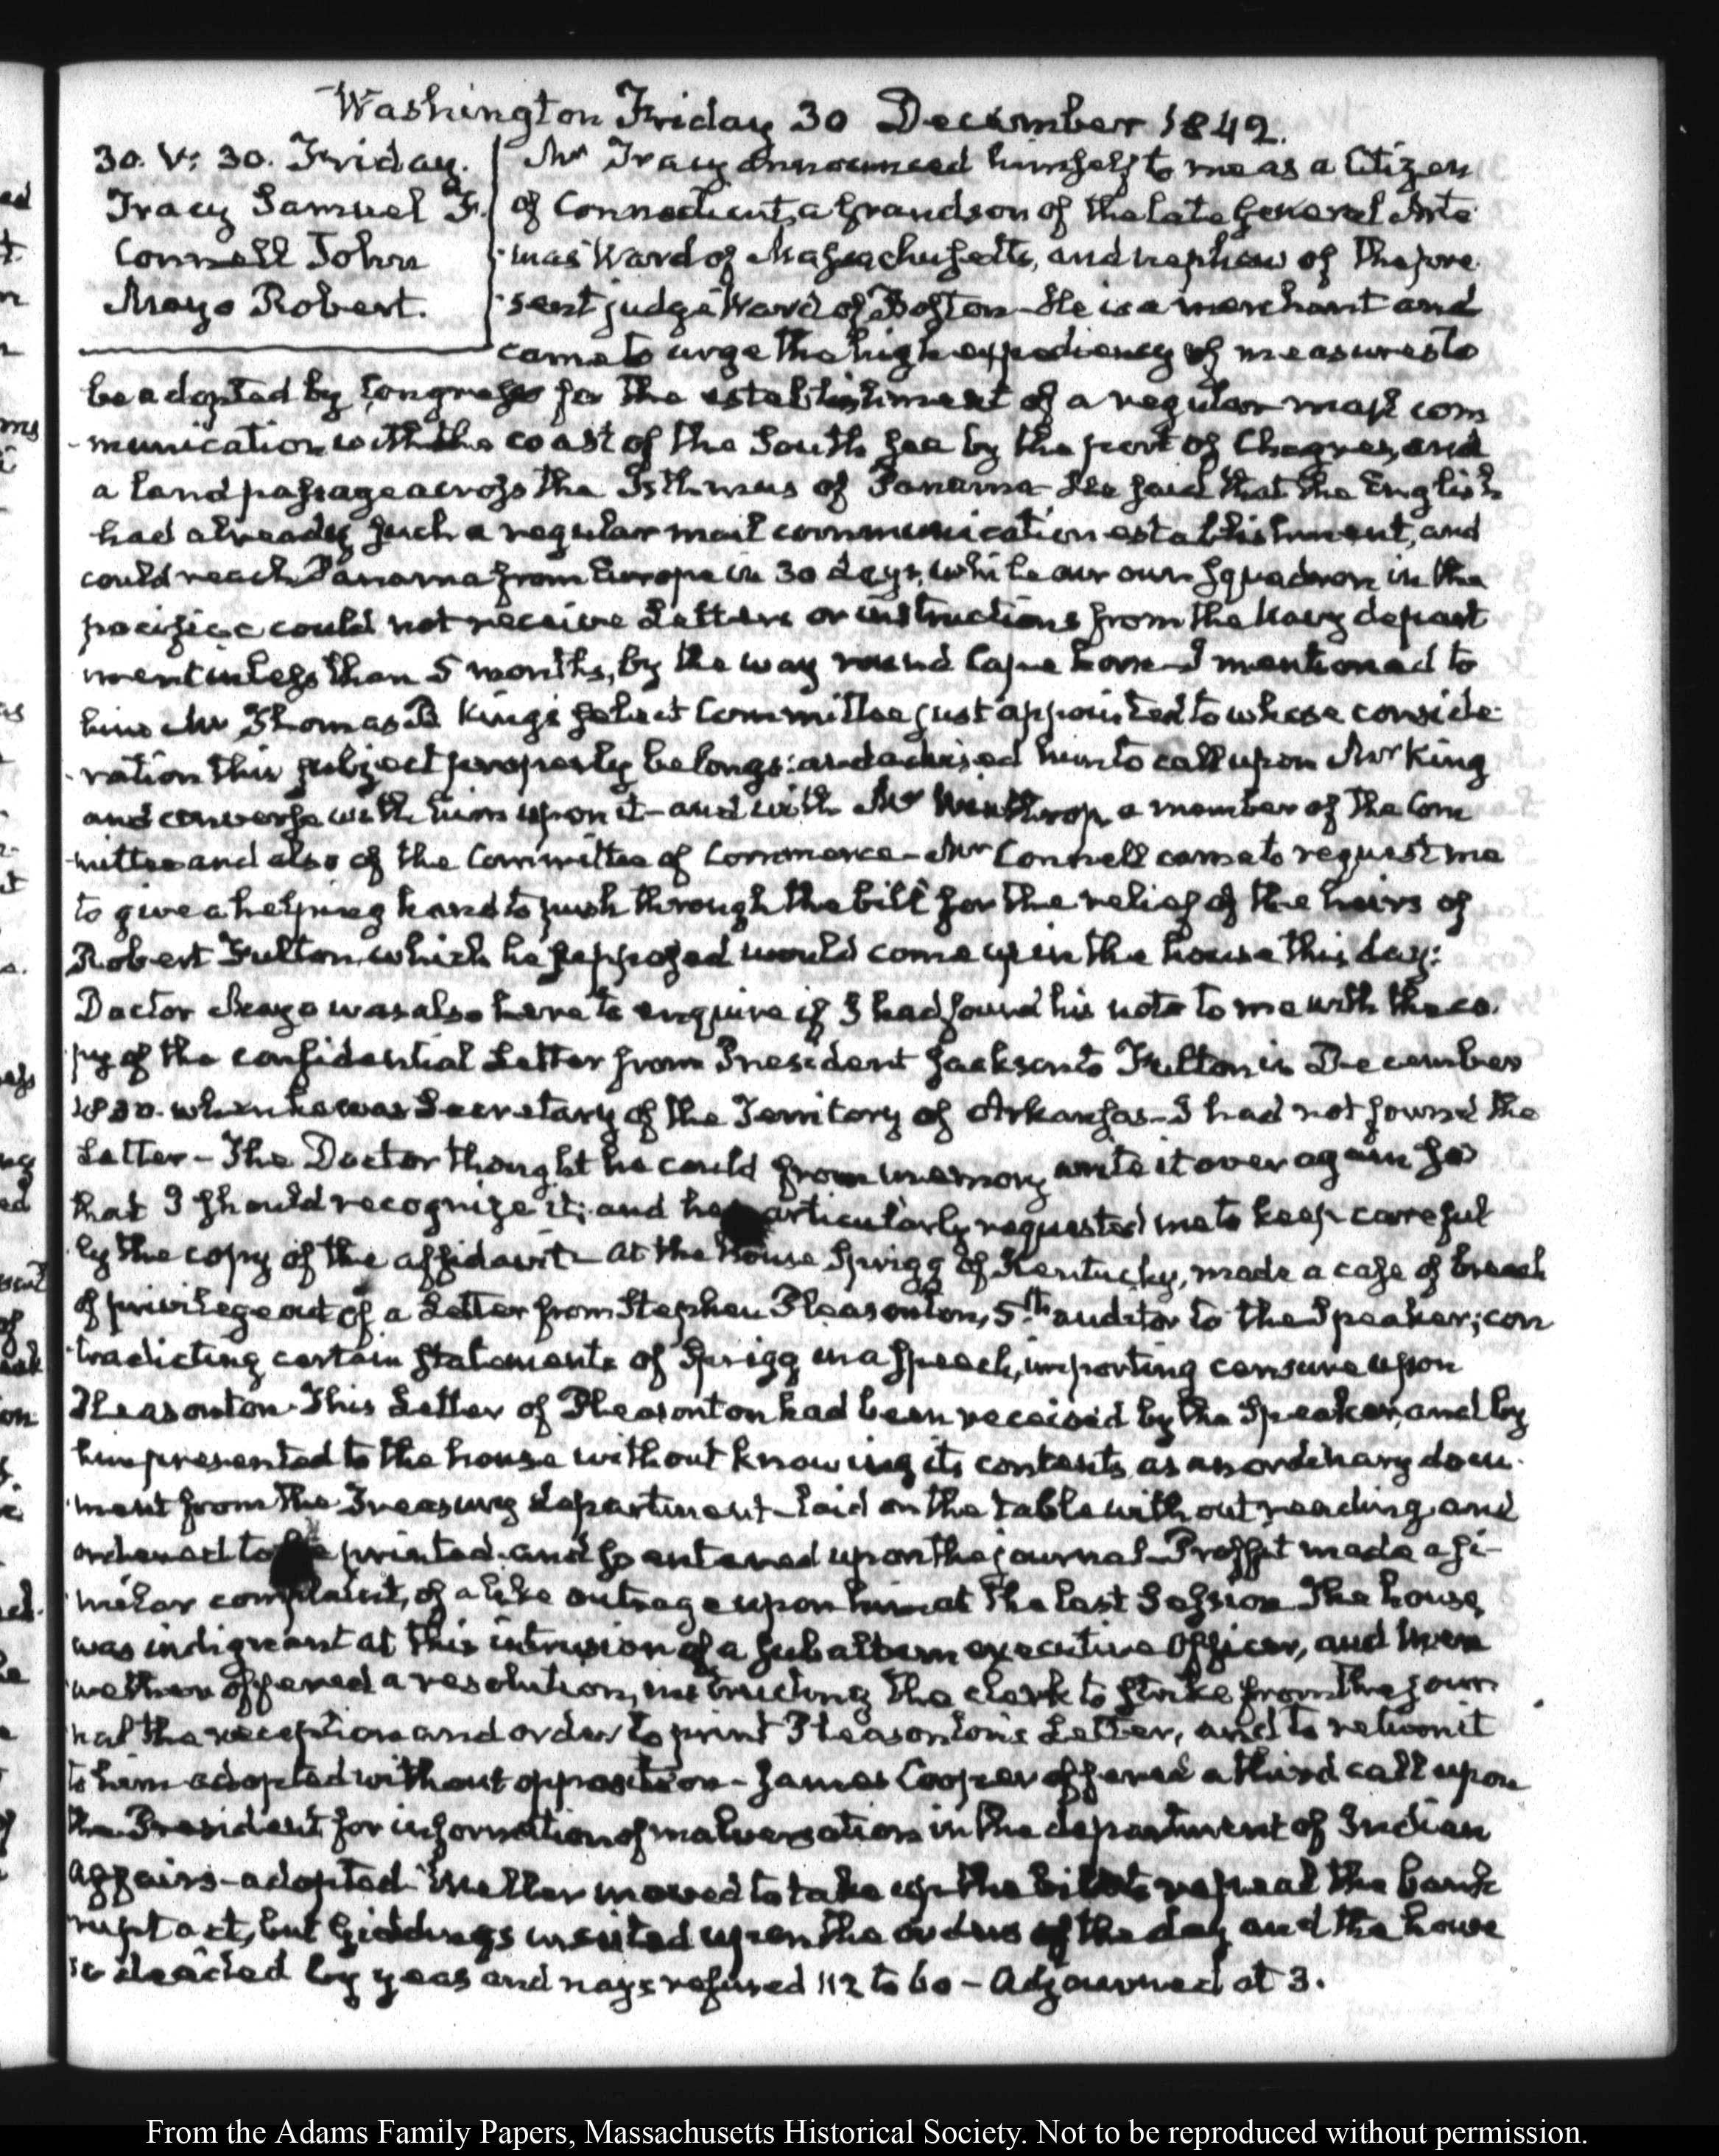 Washington Friday 30 December 1842.
30. V: 30. Friday.
Tracy Samuel F.
Connell John
Mayo Robert.
Mr Tracy announced himself to me as a Citizen
of Connecticut, a Grandson of the late General Arte-
-mas Ward of Massachusetts, and nephew of the pre-
-sent judge Ward of Boston— He is a merchant and
came to urge the high expediency of measures to
be adopted by Congress for the establishment of a regular mail com
-munication with the coast of the South Sea by the port of Chagres, and
a land passage across the Isthmus of Panama— He said that the English
had already such a regular mail communication establishment, and
could reach Panama from Europe in 30 days, while our own Squadron in the
pacific could not receive Letters or instructions from the Navy depart
ment in less than 5 months, by the way round Cape horn— I mentioned to
him Mr Thomas B King's Select Committee just appointed to whose conside-
-ration this subject properly belongs: and advised him to call upon Mr King
and converse with him upon it— and with Mr Winthrop a member of the Com
-mittee and also of the Committee of Commerce— Mr Connell came to request me
to give a helping hand to push through the bill for the relief of the heirs of
Robert Fulton, which he supposed would come up in the house this day:
Doctor Mayo was also here to enquire if I had found his note to me with the co-
py of the confidential Letter from President Jackson to Fulton in December
1830. when he was Secretary of the Territory of Arkansas— I had not found the
Letter— The Doctor thought he could from memory write it over again so
that I should recognize it; and he particularly requested me to keep careful
ly the copy of the affidavit— At the House Sprigg of Kentucky, made a case of breach
of privilege out of a Letter from Stephen Pleasonton, 5th auditor to the Speaker; con
tradicting certain statements of Sprigg in a Speech, importing censure upon
Pleasonton. This Letter of Pleasonton had been received by the Speaker, and by
him presented to the house without knowing its contents as an ordinary docu-
-ment from the Treasury department— laid on the table without reading and
ordered to be printed. and so entered upon the journal— Proffit made a si-
-milar complaint, of a like outrage upon him at the last Session The house
was indignant at this intrusion of a subaltern executive Officer, and Meri
wether offered a resolution, instructing the clerk to strike from the jour
nal the reception and order to print Pleasonton's Letter, and to return it
to him adopted without opposition— James Cooper offered a third call upon
the President for information of malversation in the department of Indian
Affairs— adopted. Weller moved to take up the bill to repeal the bank
rupt act, but Giddings insisted upon the orders of the day and the house
so decided by yeas and nays refused 112 to 60— Adjourned at 3.
From the Adams Family Papers, Massachusetts Historical Society. Not to be reproduced without permission.